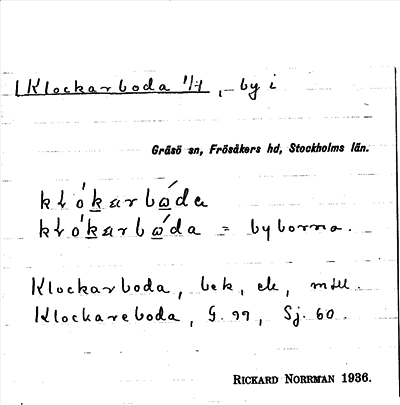 Klockarboda 1/1, by i
Gräsö sn, Frösåkers hd, Stockholms län.
kłókarbώda
kłókarbώda = byborna.
Klockarboda, bek, ek,
Klockareboda, G. 99, Sj. 60.
RICKARD NORRMAN 1936.